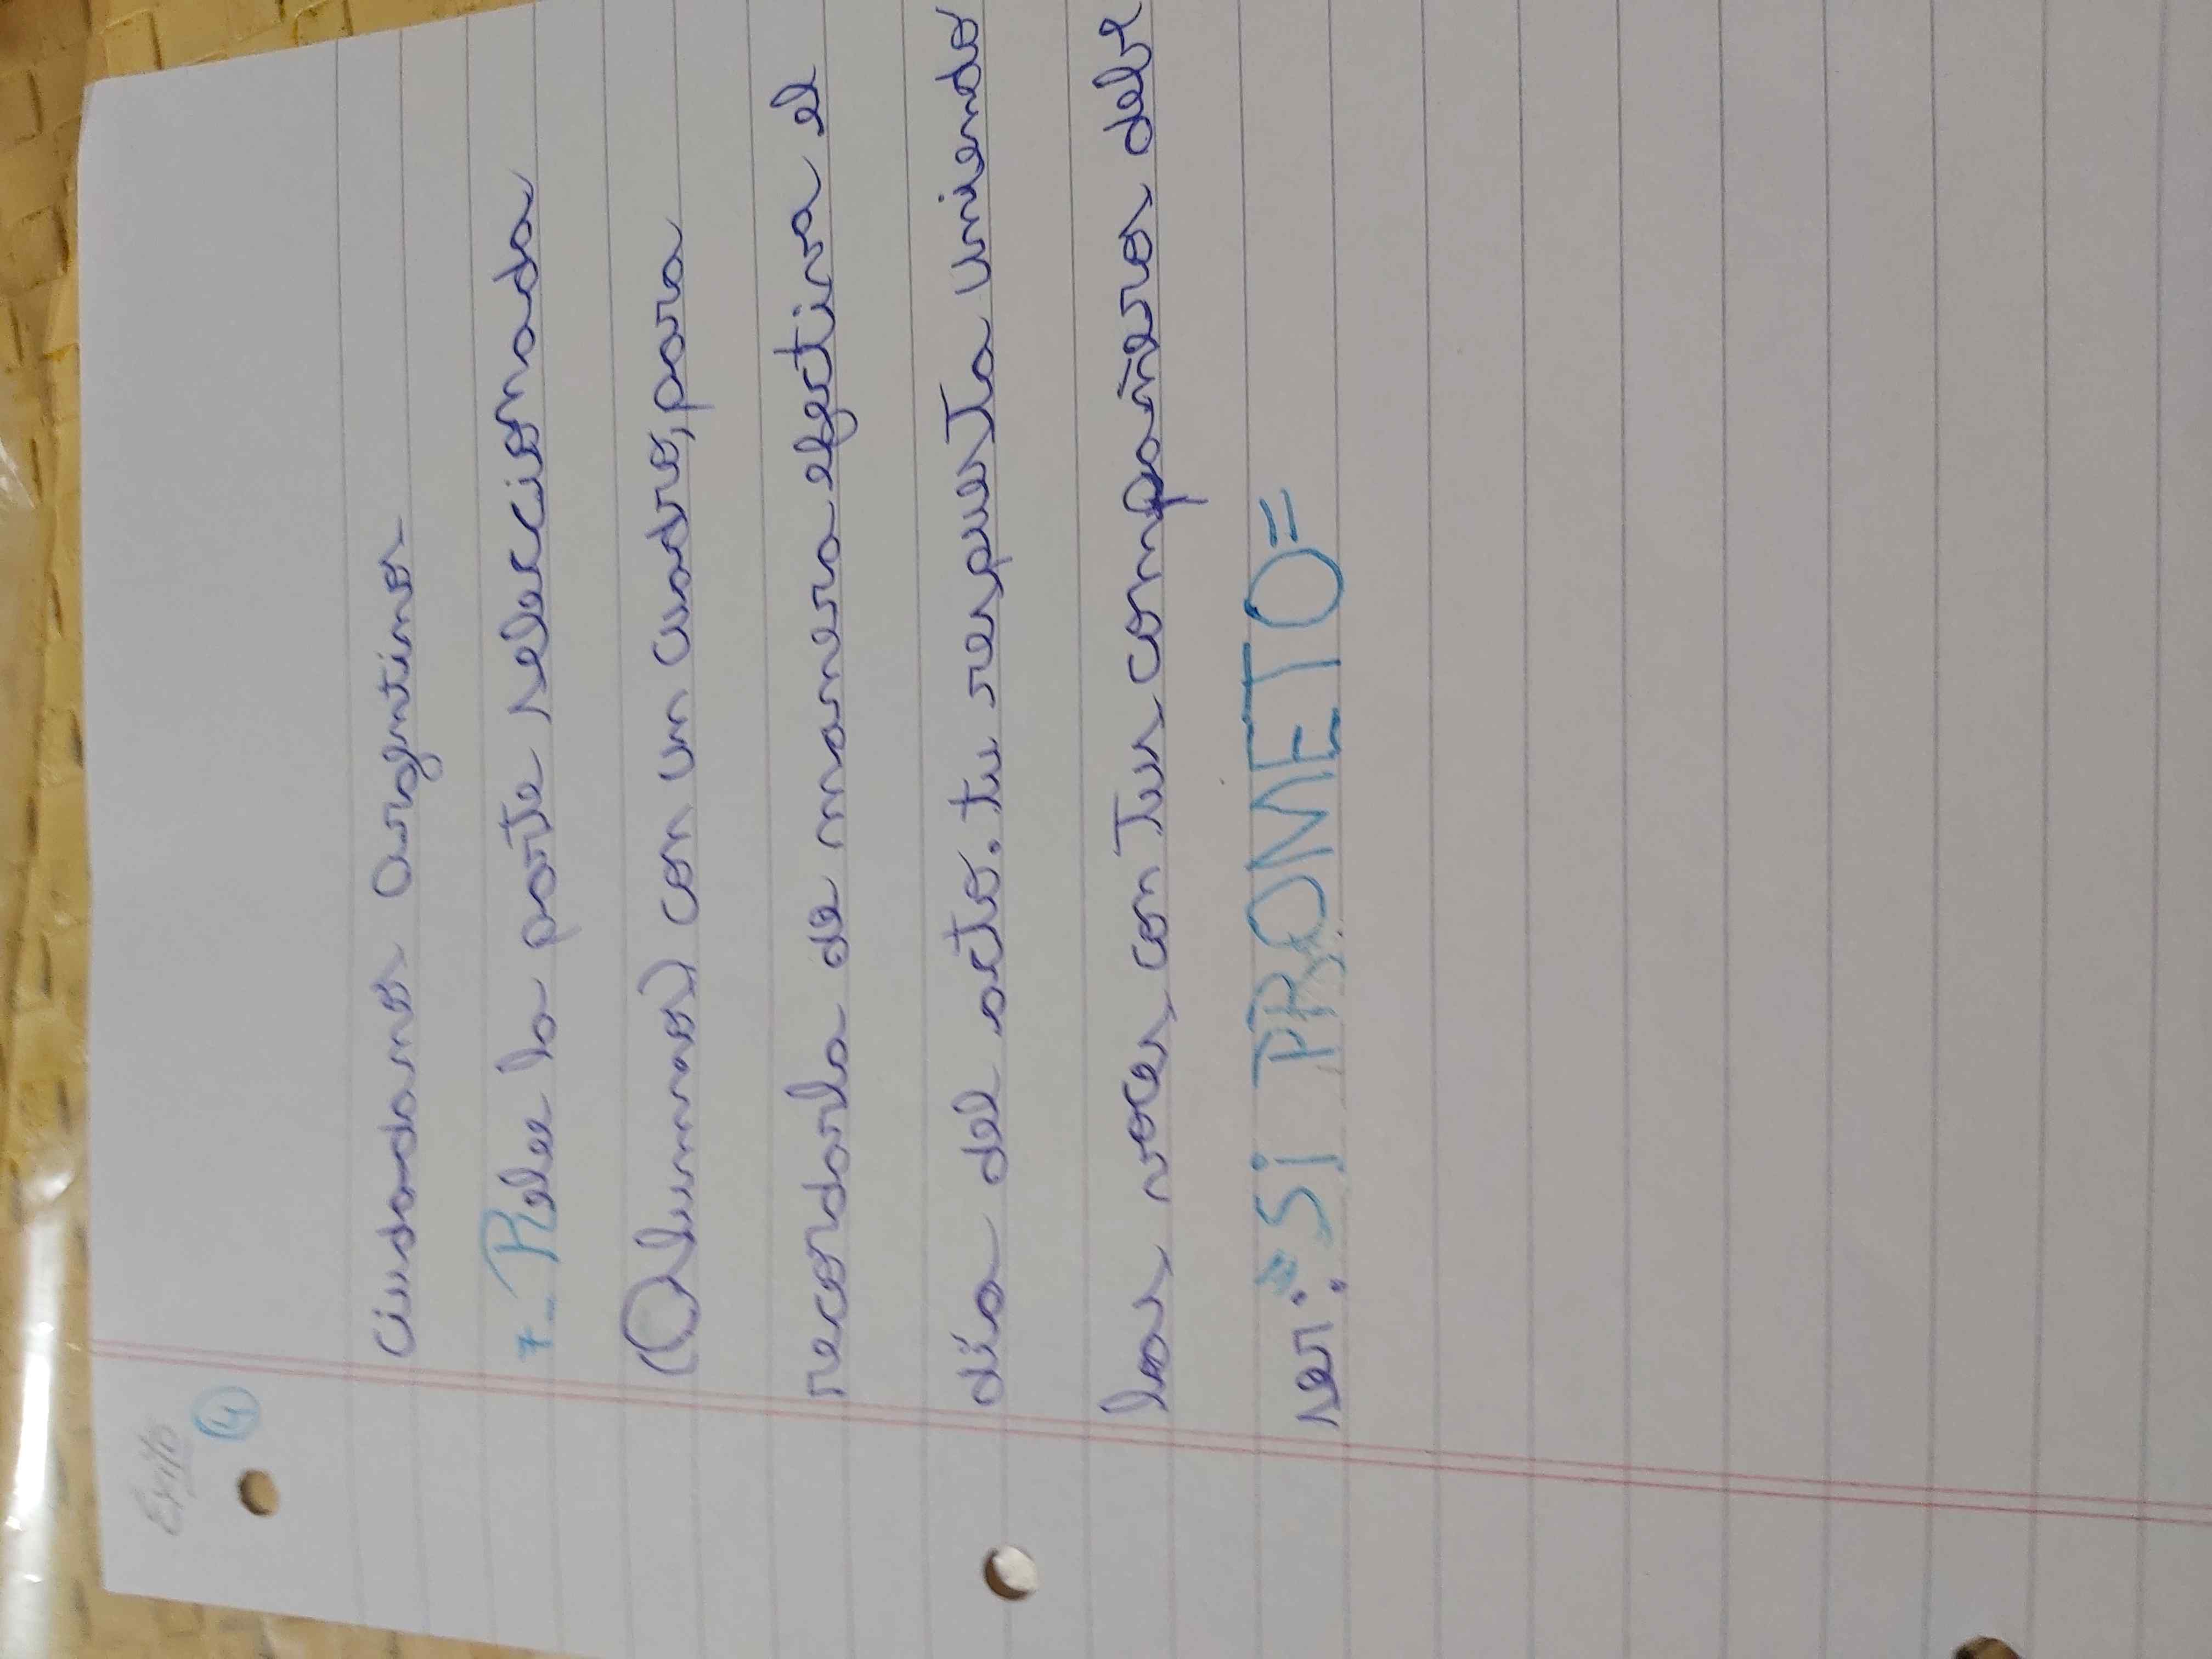 Exito
4
ciudadanos argentinos
7_ Relee la parte seleccionada
(Alumnos) con un cuadro, para
recordarla de manera efectiva el
día del acto. tu respuesta uniendo
las voces con tus compañeros debe
ser: "SI PROMETO"